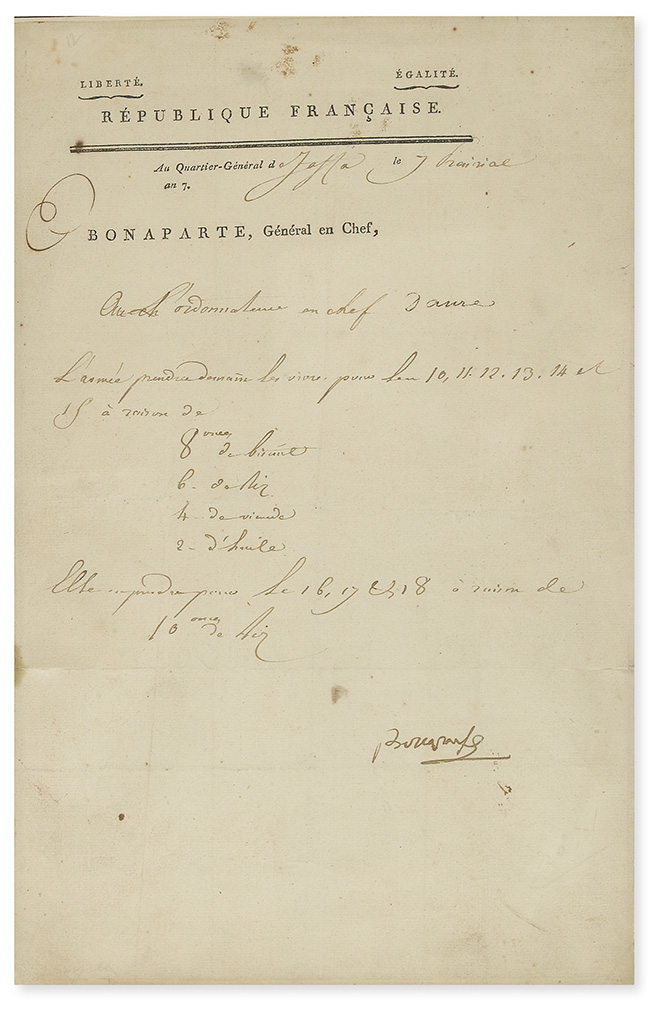 LIBERTÉ. ÉGALITÉ.
RÉPUBLIQUE FRANÇAISE.
Au Quartier-Général de Jaffa le 7 Prairial
an 7.
BONAPARTE, Général en Chef,
ordonnateur en chef Daure
L'armée prendra demain les vivres pour les 10, 11. 12. 13. 14 et
15 à raison de
8 onces de biscuit
6 - de Riz
4 - de viande
2 - d'huile
Elle prendra pour le 16, 17 et 18 à raison de
10 onces de Riz
Bonaparte